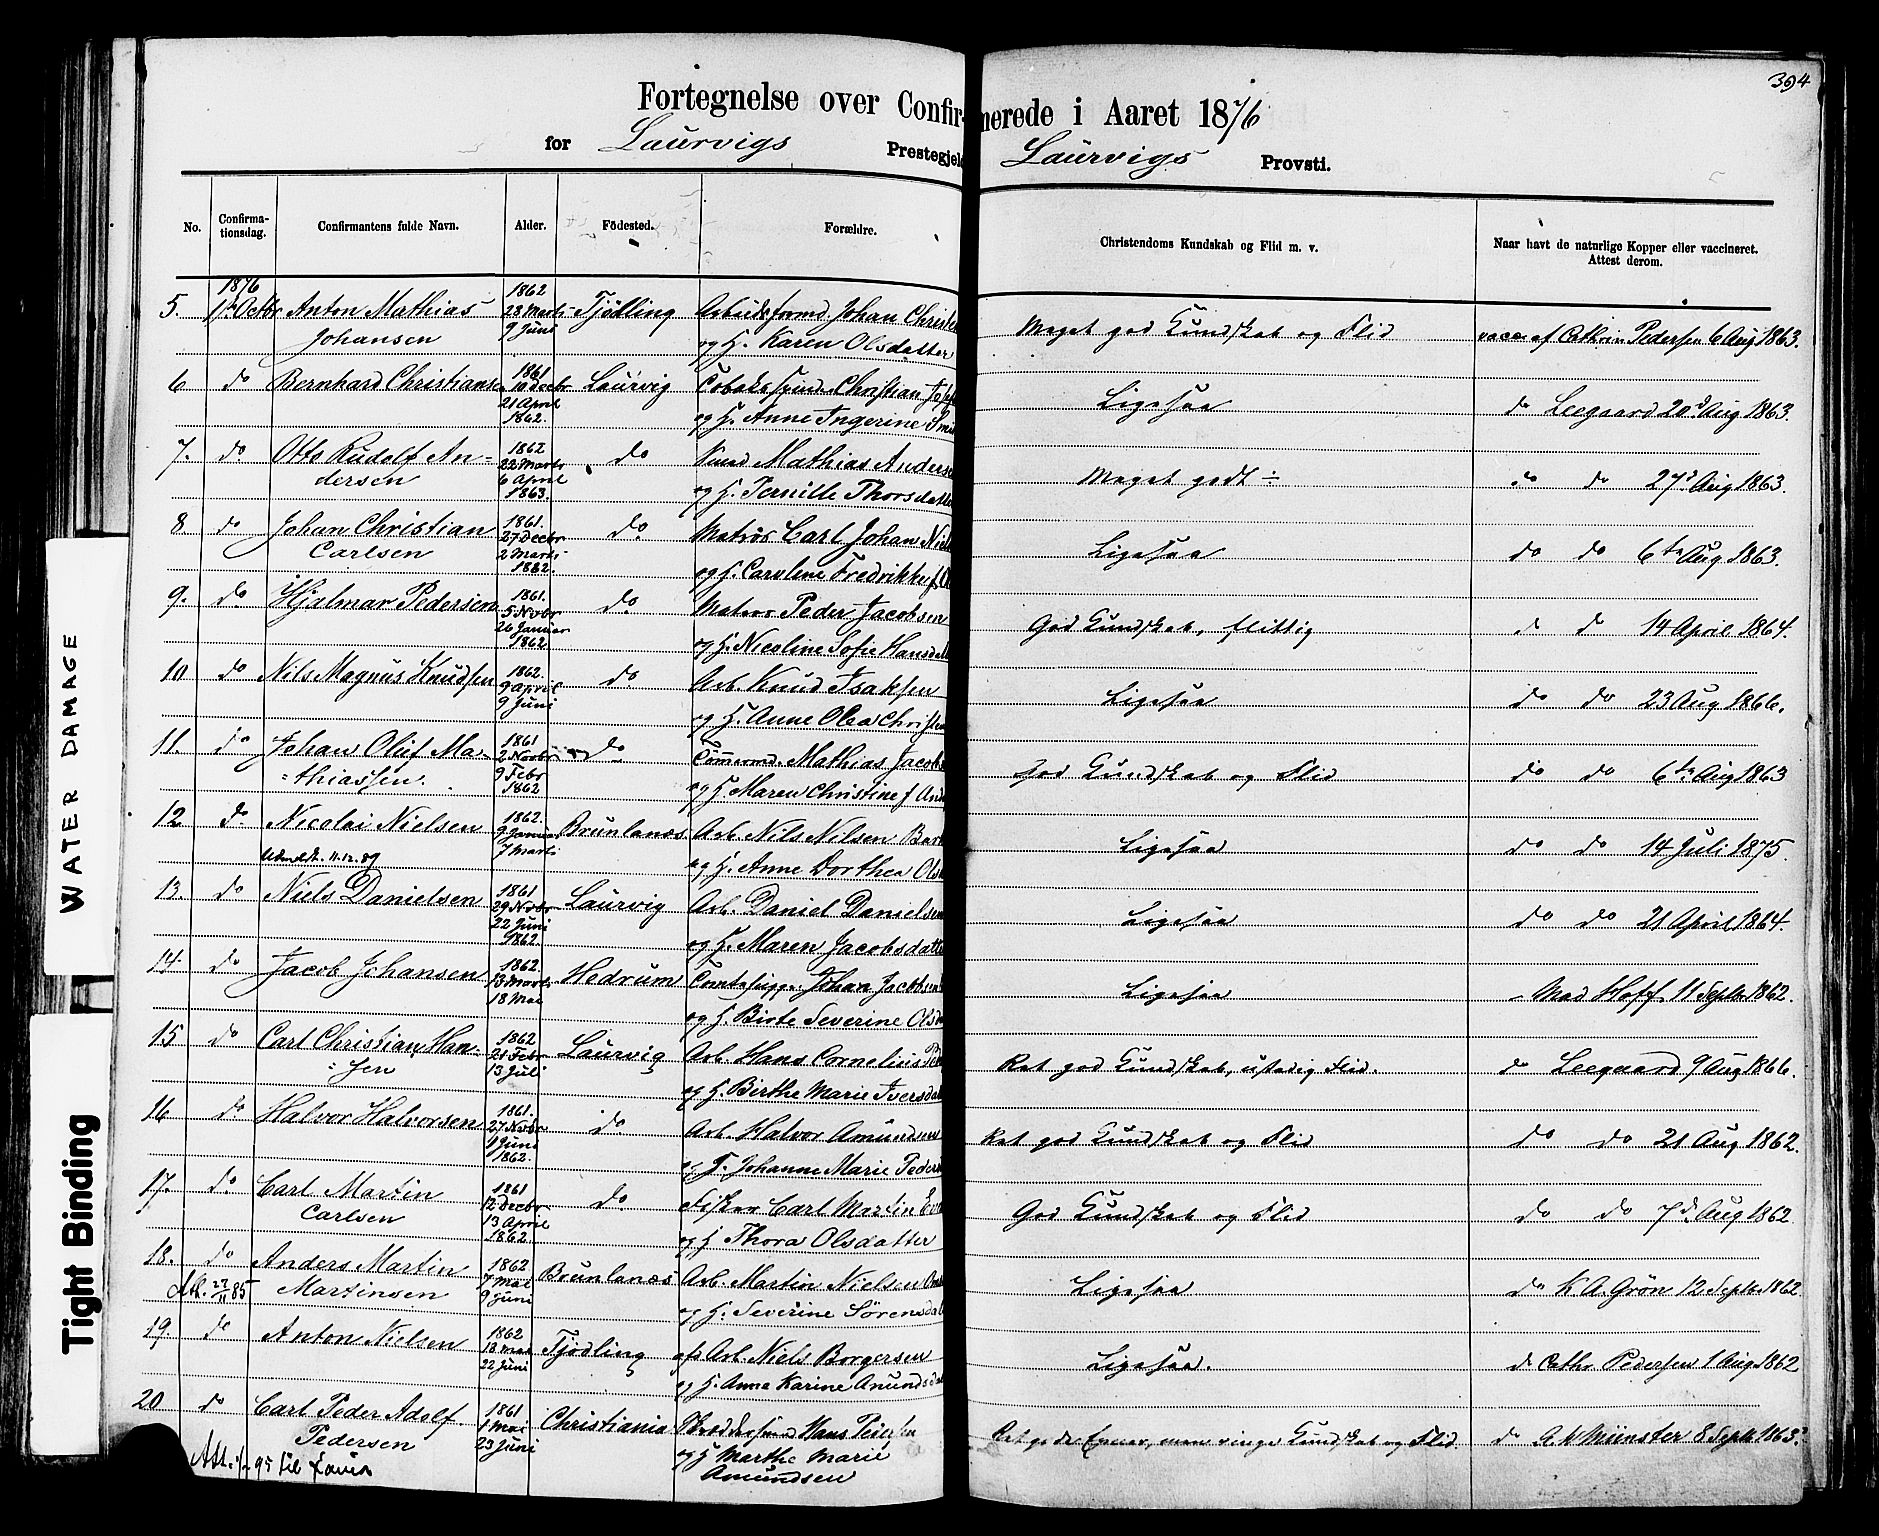 394
Fortegnelse over Confirmerede i Aaret 1876
for Laurvigs Prestegjeld Laurvigs Provsti.
No. Confirmationsdag. Confirmantens fulde Navn. Alder. Födested. Forældre. Christendoms Kundskab og Flid m. v. Naar havt de naturlige Kopper eller vaccineret. Attest derom.
1876 1862
5. 1ste Octbr Anton Mathias 28 Marts Tjödling Arbeidsformd. Johan Christ Meget god Kundskab og Flid vacc. af Cathrin Pedersen 6 Aug 1863.
Johansen 9 Juni og H. Karen Olsdatter
1861
6 do Bernhard Christiansen 10 Decbr Laurvig Christian Ligesaa do Leegaard 20d Aug 1863.
21 April 1862. og H. Anne Ingerine
1862
7. do Otto Rudolf An= 22 Marts do Mathias Anders Meget godt ÷ do do 27d Aug 1863.
dersen 6 April 1863. og H. Pernille Thorsdatte
1861.
8. do Johan Christian 27 Decbr do. Matros Carl Johan Niel Ligesaa do do 6te Aug 1863.
Carlsen 2 Marts 1862. og H. Caroline Fredrikke f.
1861.
9. do Hjalmar Pedersen 5 Novbr do. Matros Peder Jacobsen God Kundskab, flittig do do 14 April 1864.
26 Januar 1862. og H. Nicoline Sofie Hansda
1862.
10 do Nils Magnus Knudsen 9 April do. Arb. Knud Isaksen Ligesaa do do 23 Aug 1866.
9 Juni og H. Anne Olea Christ
1861
11. do Johan Oluf Ma- 2 Novbr do Tömmermd. Mathias Jacobs God Kundskab og Flid do do 6te Aug 1863
=thiassen. 9 Febr 1862 og H. Maren Christine f. And
1862.
12 do Nicolai Nielsen 9 Januar Brunlanæs Arb. Nils Nilsen Ligesaa do do 14 Juli 1875.
Udmeldt. 11.12.89 7 Marts og H. Anne Dorthea Ols
1861
13. do Niels Danielsen 29 Novbr Laurvig Arb. Daniel Danielsen Ligesaa do do 21 April 1864.
22 Juni 1862. og H. Maren Jacobsdatte
1862.
14. do Jacob Johansen 13 Marts Hedrum Johan Jacobsen Ligesaa Mad Hoff 11 Septbr 1862.
18 Mai og H. Birte Severine Ols
1862
15 do Carl Christian Han= 21 Febr Laurvig Arb. Hans Cornelius Ret god Kundskab, ustadig Flid. do Leegaard 9 Aug 1866.
=sen 13 Juli og H. Birthe Marie Iversda
1861.
16 do Halvor Halvorsen 27 Novbr do Arb. Halvor Amundsen Ret god Kundskab og Flid do do 21 Aug 1862.
9 Juni 1862. og H. Johanne Marie Peders
1861
17. do Carl Martin 12 Decbr do Fisker Carl Martin God Kundskab og Flid do do 7d Aug 1862
Carlsen 13 April 1862. og H Thora Olsdatter
1862
18. do Anders Martin 7 Mai Brunlanæs Arb. Martin Nielsen Ligesaa do K A. Grön 12 Septbr 1862
Att. 27/11 85 Martinsen 9 Juni og H. Severine Sörensdat
1862
19. do Anton Nielsen 18 Mai Tjödling Arb. Niels Borgersen Ligesaa. do Cathr Pedersen 1 Aug 1862
22 Juni og H. Anne Karine Anundsda
1861
20 do Carl Peder Adolf 1 Mai Christiania Hans Pedersen Ret gode Evner, men ringe Kundskab og Flid. do A. M Münster 8 Septb 1863.
Pedersen 23 Juni og H Marthe Marie
Att. 95 til Amundsen
WATER DAMAGE
Tight Binding